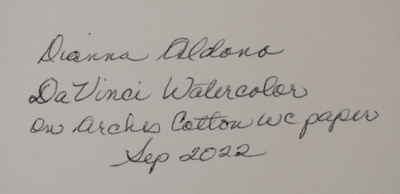 Dianna Aldono
DaVinci Watercolor
on Arches Cotton wc paper
Sep 2022